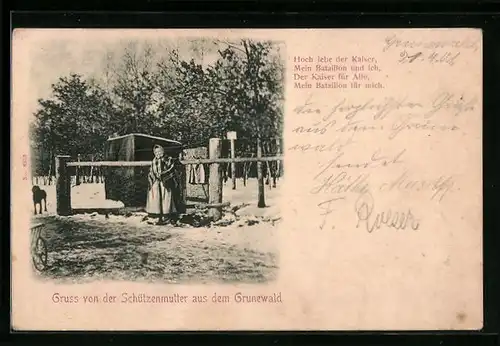 Hoch lebe der Kaiser,
Mein Bataillon und ich,
Der Kaiser für Alle,
Mein Bataillon für mich.
Grunewald
Die herzlichsten Grüße
aus dem Grune
wald
sendet
Käthe
F. Roeser
Gruss von der Schützenmutter aus dem Grunewald